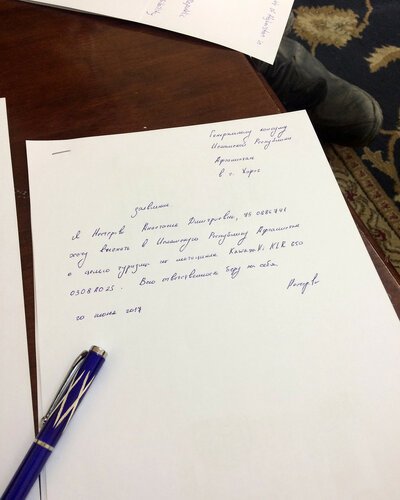 Генеральному консулу
Исламской Республики
Афганистан
в г. Хорог
заявление.
Я Номеров Анатолий Дмитриевич, 75 0886741
хочу въехать в Исламскую Республику Афганистан
с целью туризма на мотоцикле Kawasaki KLR 650
0308 AO25. Всю ответственность беру на себя.
20 июня 2017